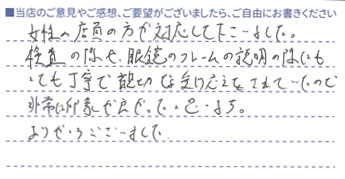 ■当店のご意見やご感想、ご要望がございましたら、ご自由にお書きください
女性の店員の方が対応して下さいました。
検査の際や、眼鏡のフレームの説明の際にも
とても丁寧で親切な受け応えをされていたので
非常に印象が良かったと思います。
ありがとうございました